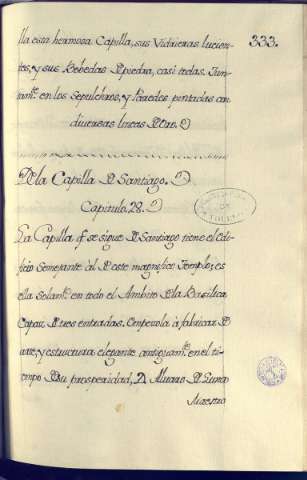 lla esta hermosa Capilla, sus Vidrieras lucien- 333.
tes, y sus Bobedas D Piedra, casi todas. Jun-
tamte. en los Sepulchros, y Paredes pintadas con
diuersas lineas D Oro.
D la Capilla D Santiago.
Capitulo. 28.
La Capilla q. se sigue D Santiago tiene el Edi-
ficio Semejante àl D este magnifico Templo; es
ella Solamte. en todo el Ambito D la Basilica
Capaz D tres entradas. Empezola à fabricar D
arte, y estructura elegante antiguamte. en el ti-
empo D su prosperidad, D. Aluaro D Luna
Maestro